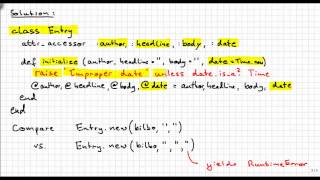 Solution:
class Entry
attr_accessor :author, :headline, :body, :date
def initialize (author, headline = '', body = '', date = Time.now)
raise "Improper date" unless date.is_a? Time
@author, @headline, @body, @date = author, headline, body, date
end
end
Compare Entry.new(bilbo, '', '')
vs. Entry.new(bilbo, '', '', '')
yields RuntimeError